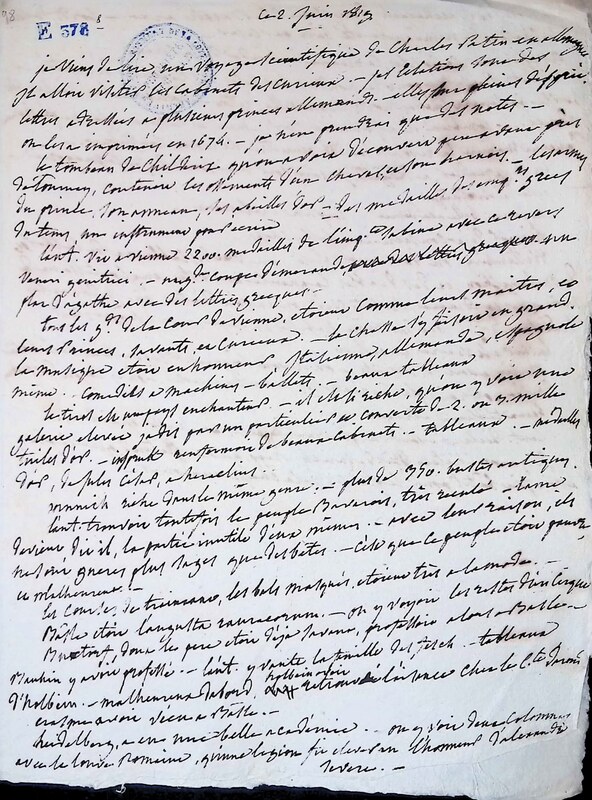 78
E 378 8
Ce 2. Juin 1819
je viens de lire, un voyage scientifique de Charles Patin en allemagne
Il alloit visiter les cabinets des curieux. — ses relations sont des
lettres adressées à plusieurs princes allemands — elles sont pleines d'esprit.
on les a imprimées en 1674. — je n'en prendrai que des notes. —
le tombeau de Childéric qu'on avoit découvert peu avant près
de Tournay, contenoit les ossements d'un cheval, et son harnois. — les armes
du prince. son anneau, ses abeilles d'or — des medailles des emp.rs grecs
du tems, un instrument pour écrire
l'aut. vit a vienne 2200. medailles de l'imp. Sabine avec ce revers
veneri genitrici. — une g.de coupe d'émeraude un
plat d'agathe avec des lettres grecques —
tous les g.ds de la Cour de vienne, étoient comme leurs maitres, et
leurs Princes, savants, et curieux. — la chasse s'y faisoit en grand.
la musique étoit en honneur Italienne, allemande, espagnole
même. comedies a machines — ballets. — beaux tableaux
le tirol est un pays enchanteur — et si riche, qu'on y voit une
galerie elevée jadis par un particulier et couverte de 2. ou 3. mille
tuiles d'or. — inspruk renfermoit de beaux cabinets. — tableaux. — medailles
d'or, de jules Cesar, a heraclius.
munnich riche dans le même genre. — plus de 350. bustes antiques.
l'aut. trouvoit toutefois le peuple Bavarois, très reculé — l'ame
devient dit il, la partie inutile d'eux mêmes. — avec leur raison, ils
ne sont gueres plus sages que des bêtes. — c'est que ce peuple étoit pauvre
et malheureux!
les courses de traineaux, les bals masqués, étoient très à la mode. —
Bâle étoit l'augusta rauracorum — on y voyoit les restes d'un cirque
Buxtorf, dont le pere étoit déja savant, professoit alors a Basle —
Bauhin y avoit professé. — l'aut. y vante la famille des fesch — tableaux
d'holbein. — malheureux d'abord, holbein avoit retrouvé l'aisance chez le C.te
erasme avoit vécu a Basle. —
heidelberg, a eu une belle académie. — on y voit deux colonnes
avec la louve Romaine, qu'une legion fit elever en l'honneur d'alexandre
severe. —